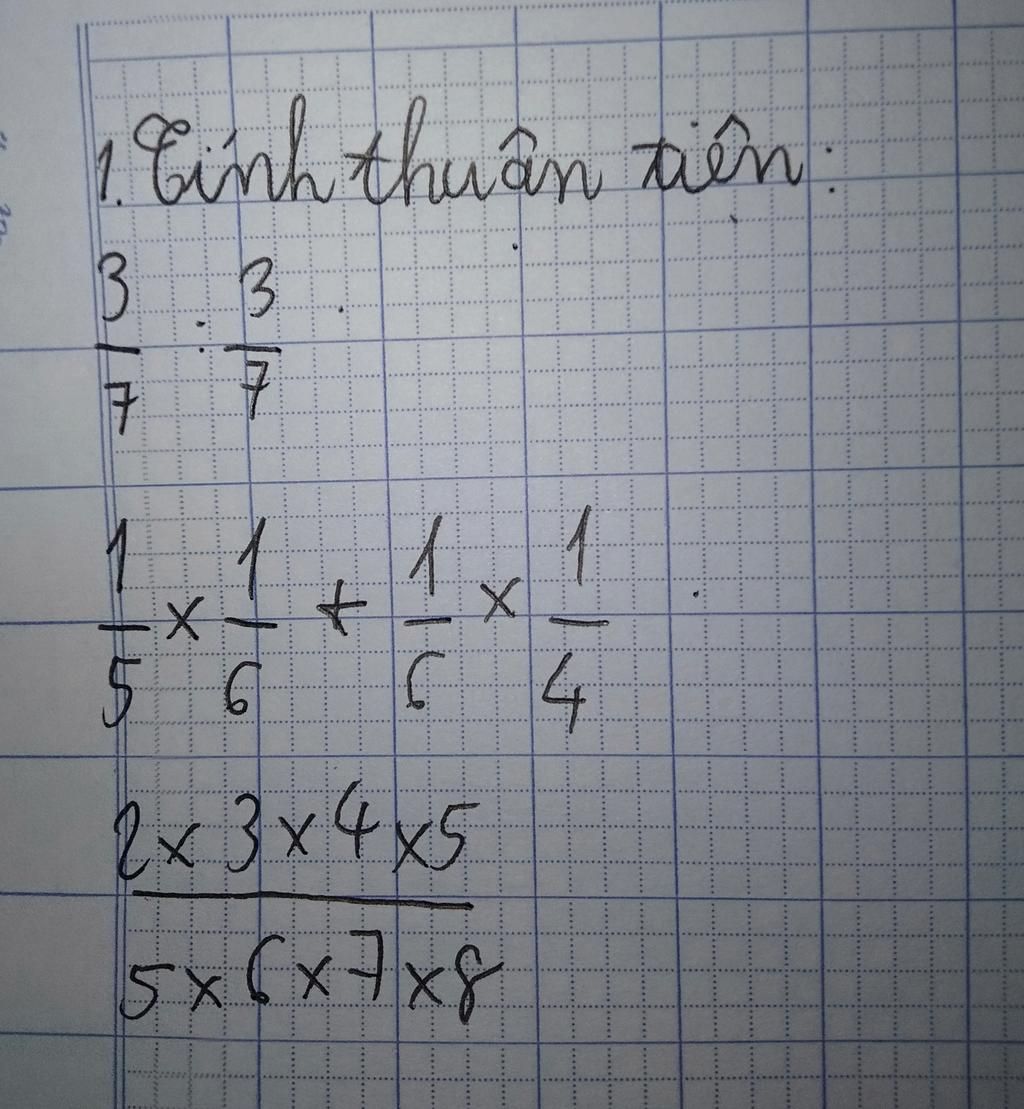 1. Tính thuận tiện:
3/7 : 3/7
1/5 × 1/6 + 1/6 × 1/4
2 × 3 × 4 × 5
5 × 6 × 7 × 8